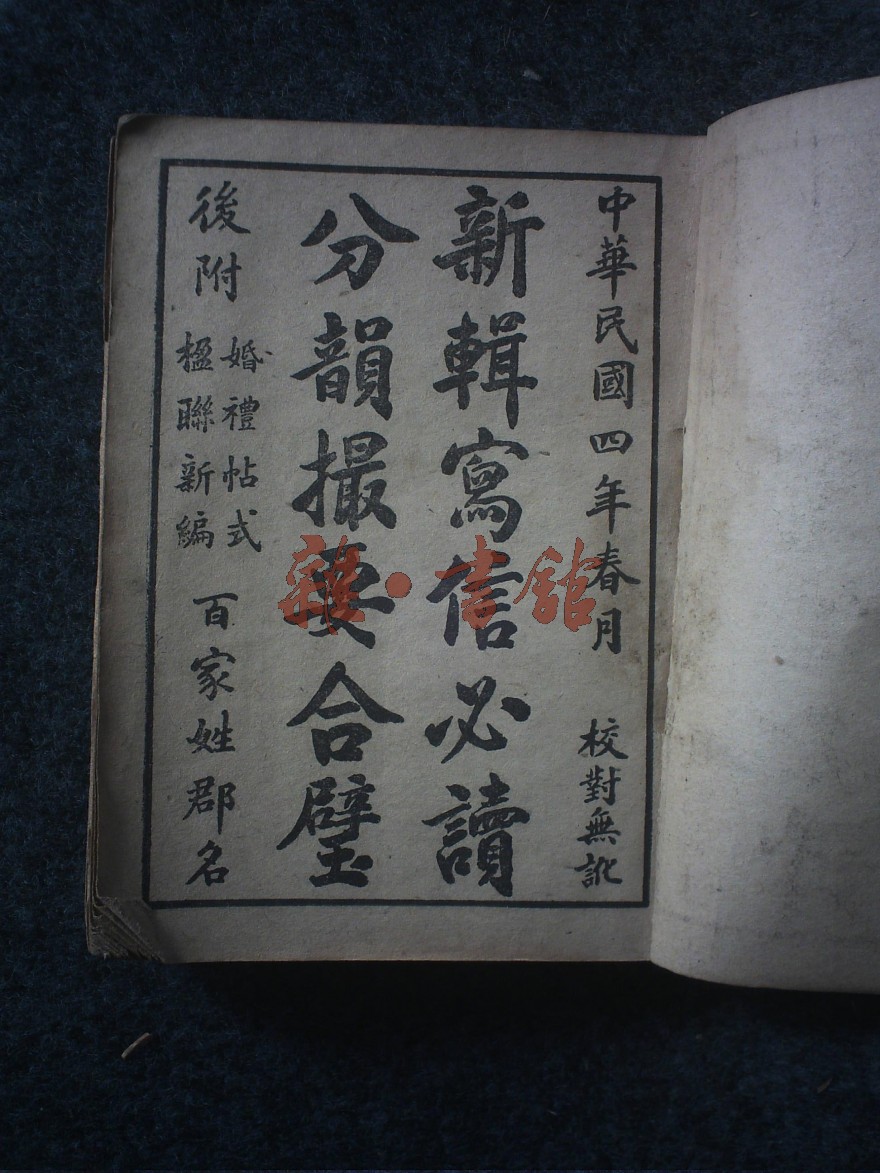 中華民國四年春月 校對無訛
新輯寫信必讀
分韻撮要合璧
後附 婚禮帖式 楹聯新編 百家姓郡名
雜·書館